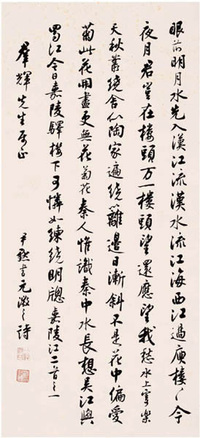 眼前明月水先入漢江流漢水流江海西江過庾樓〻今
夜月君豈在樓頭萬一樓頭望還應望我愁水上寄樂
天秋叢繞舍似陶家遍繞籬邊日漸斜不是花中偏愛
菊此花開盡更無花菊花秦人惟識秦中水長想吳江與
蜀江今日嘉陵驛樓下可憐如練繞明牕嘉陵江二首之一
羣輝先生正
尹默書元微之詩